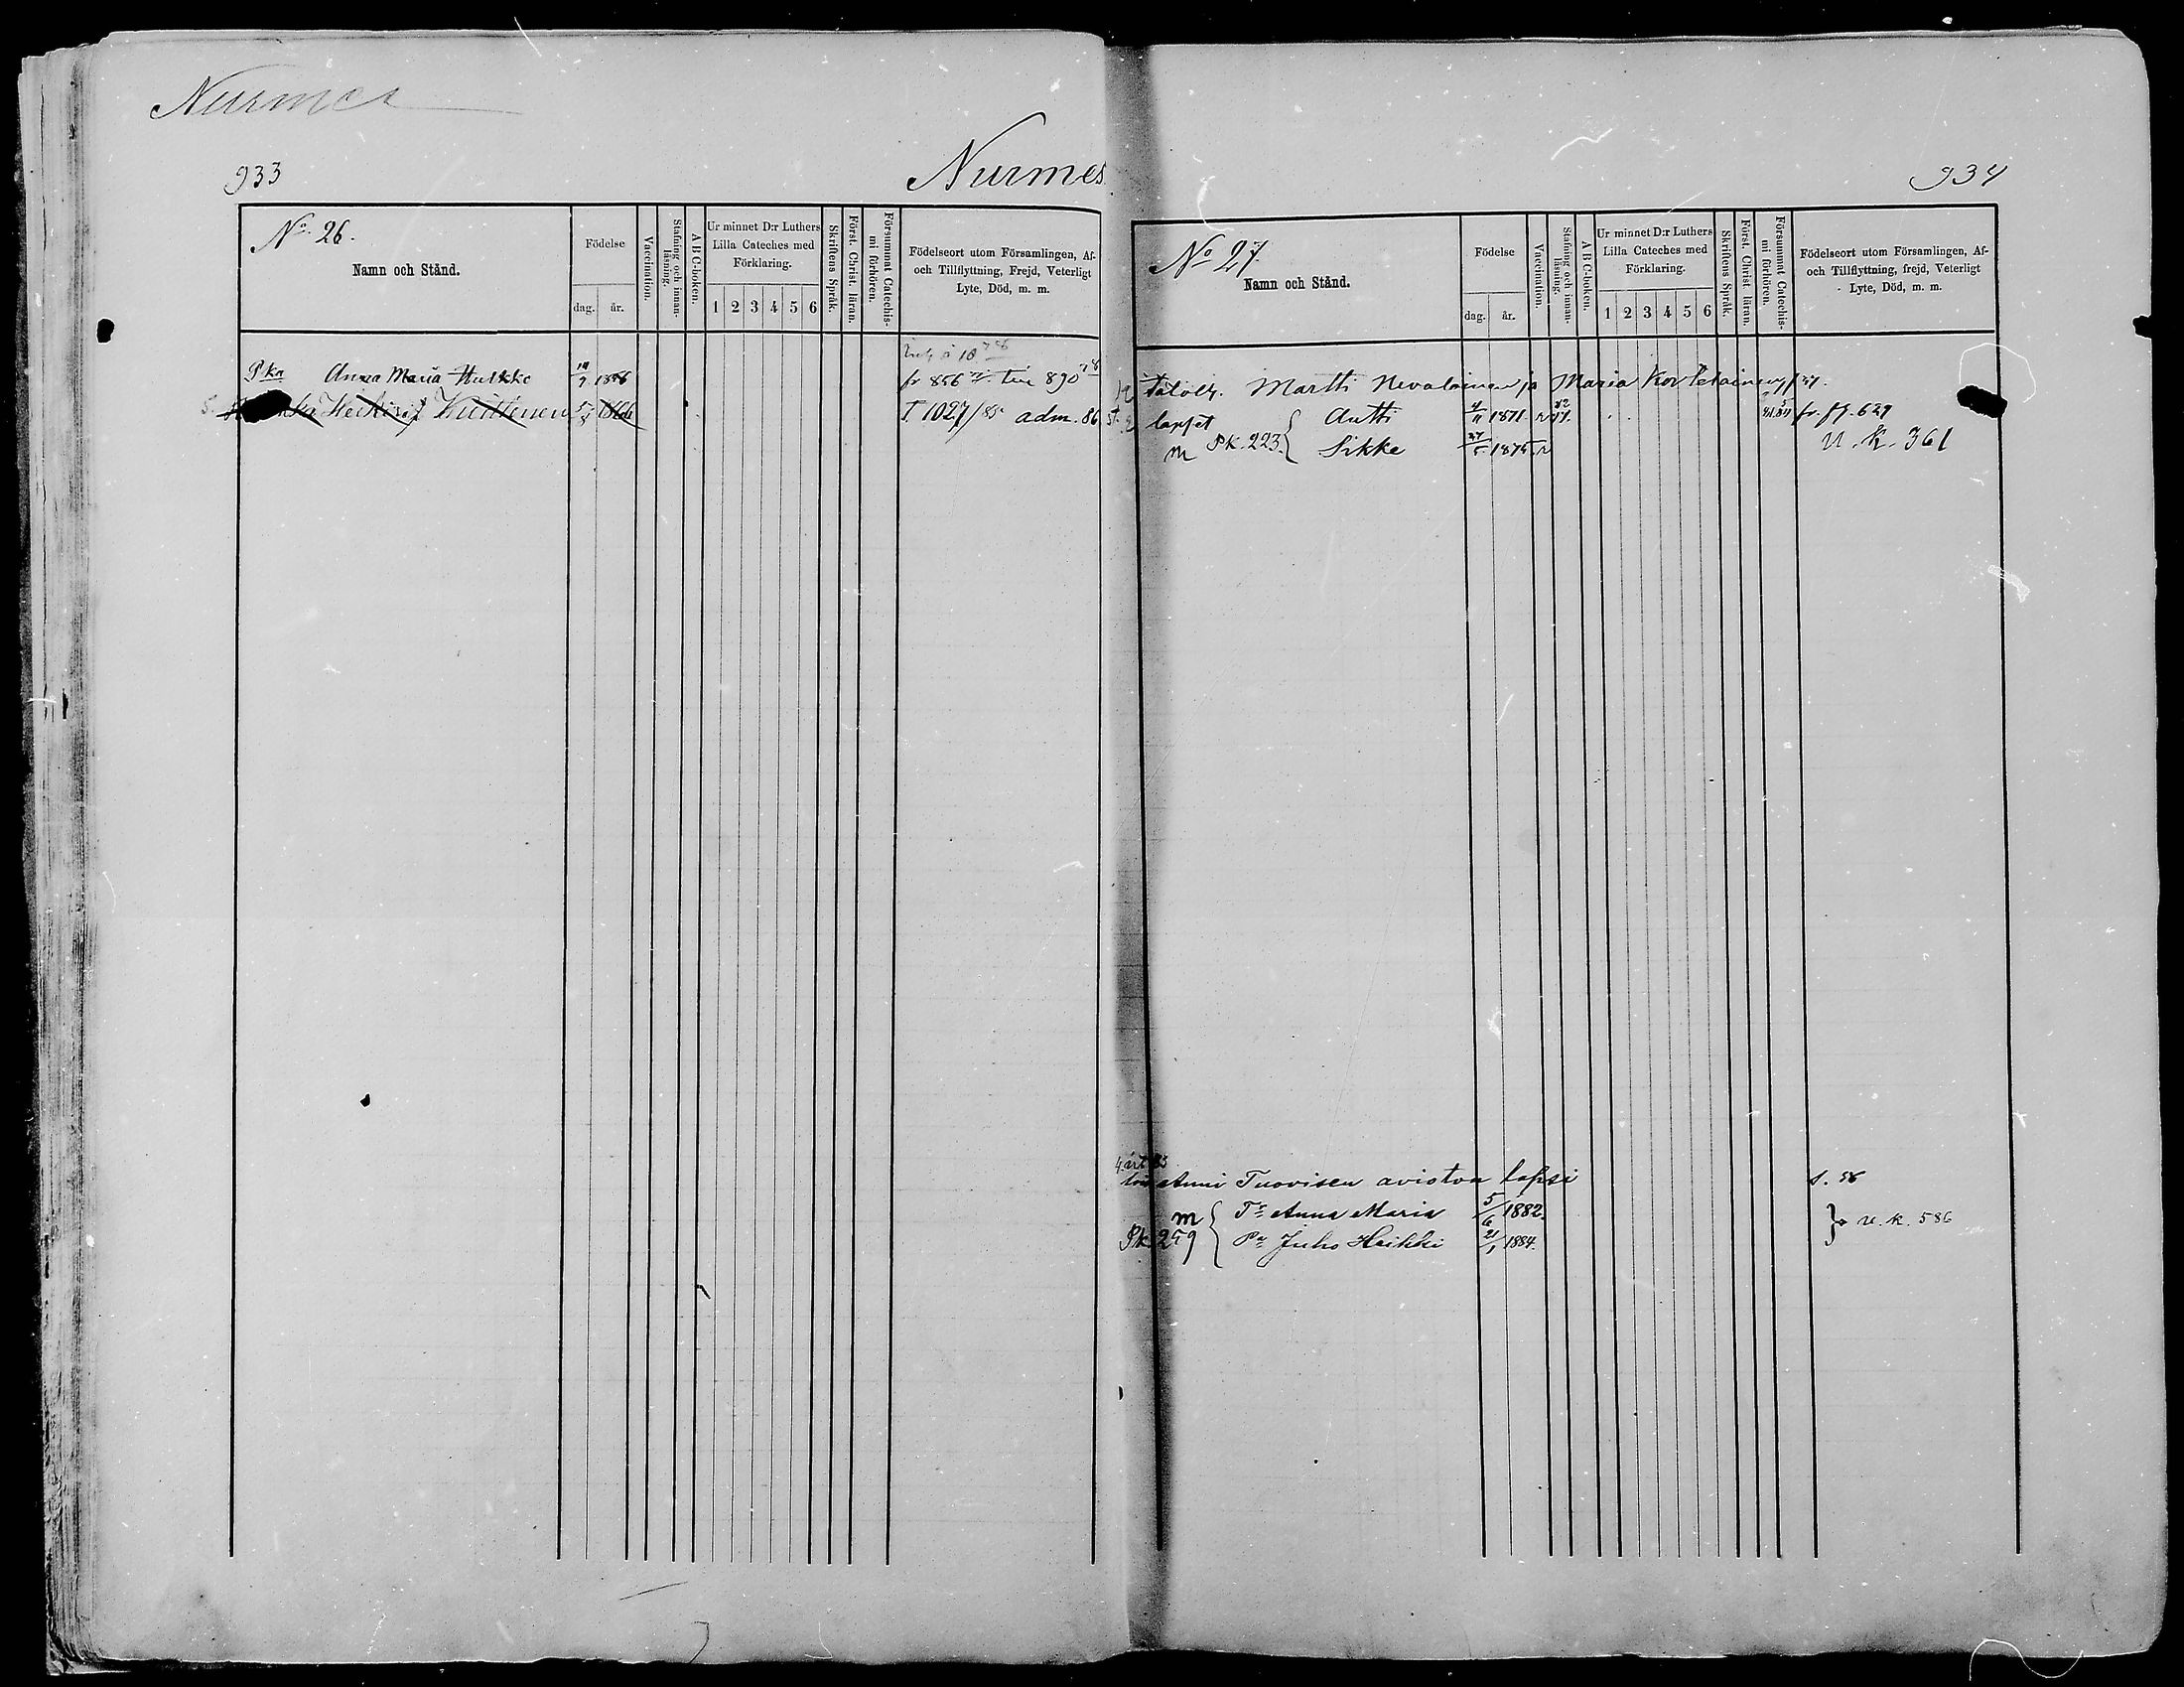 Nurmes
933
Nurmes
No 26.
Namn och Stånd.
Födelse
dag. år.
Vaccination.
Stafning och innanläsning.
A B C-boken.
Ur minnet D:r Luthers Lilla Cateches med Förklaring.
1 2 3 4 5 6
Skriftens Språk.
Först. Christ. läran.
Försummat Catechismi förhören.
Födelseort utom Församlingen, Af- och Tillflyttning, Frejd, Veterligt Lyte, Död, m. m.
Anna Maria Hulkko 1856 fr 856 890
Heikki Kuittinen T. 1027/85 adm. 86
934
No 27.
Namn och Stånd.
Födelse
dag. år.
Vaccination.
Stafning och innanläsning.
A B C-boken.
Ur minnet D:r Luthers Lilla Cateches med Förklaring.
1 2 3 4 5 6
Skriftens Språk.
Först. Christ. läran.
Försummat Catechismi förhören.
Födelseort utom Församlingen, Af- och Tillflyttning, frejd, Veterligt Lyte, Död, m. m.
Martti Nevalainen ja Maria
lapset Antti 4/11 1871 fr. 629
m Pk. 223 Sikke 27/5 1875 U. K. 361
Anni Tuovisen avioton lapsi s. 56
m Tr Anna Maria 5/6 1882
Pk 259 Pr Juho Heikki 21/1 1884 u. k. 586